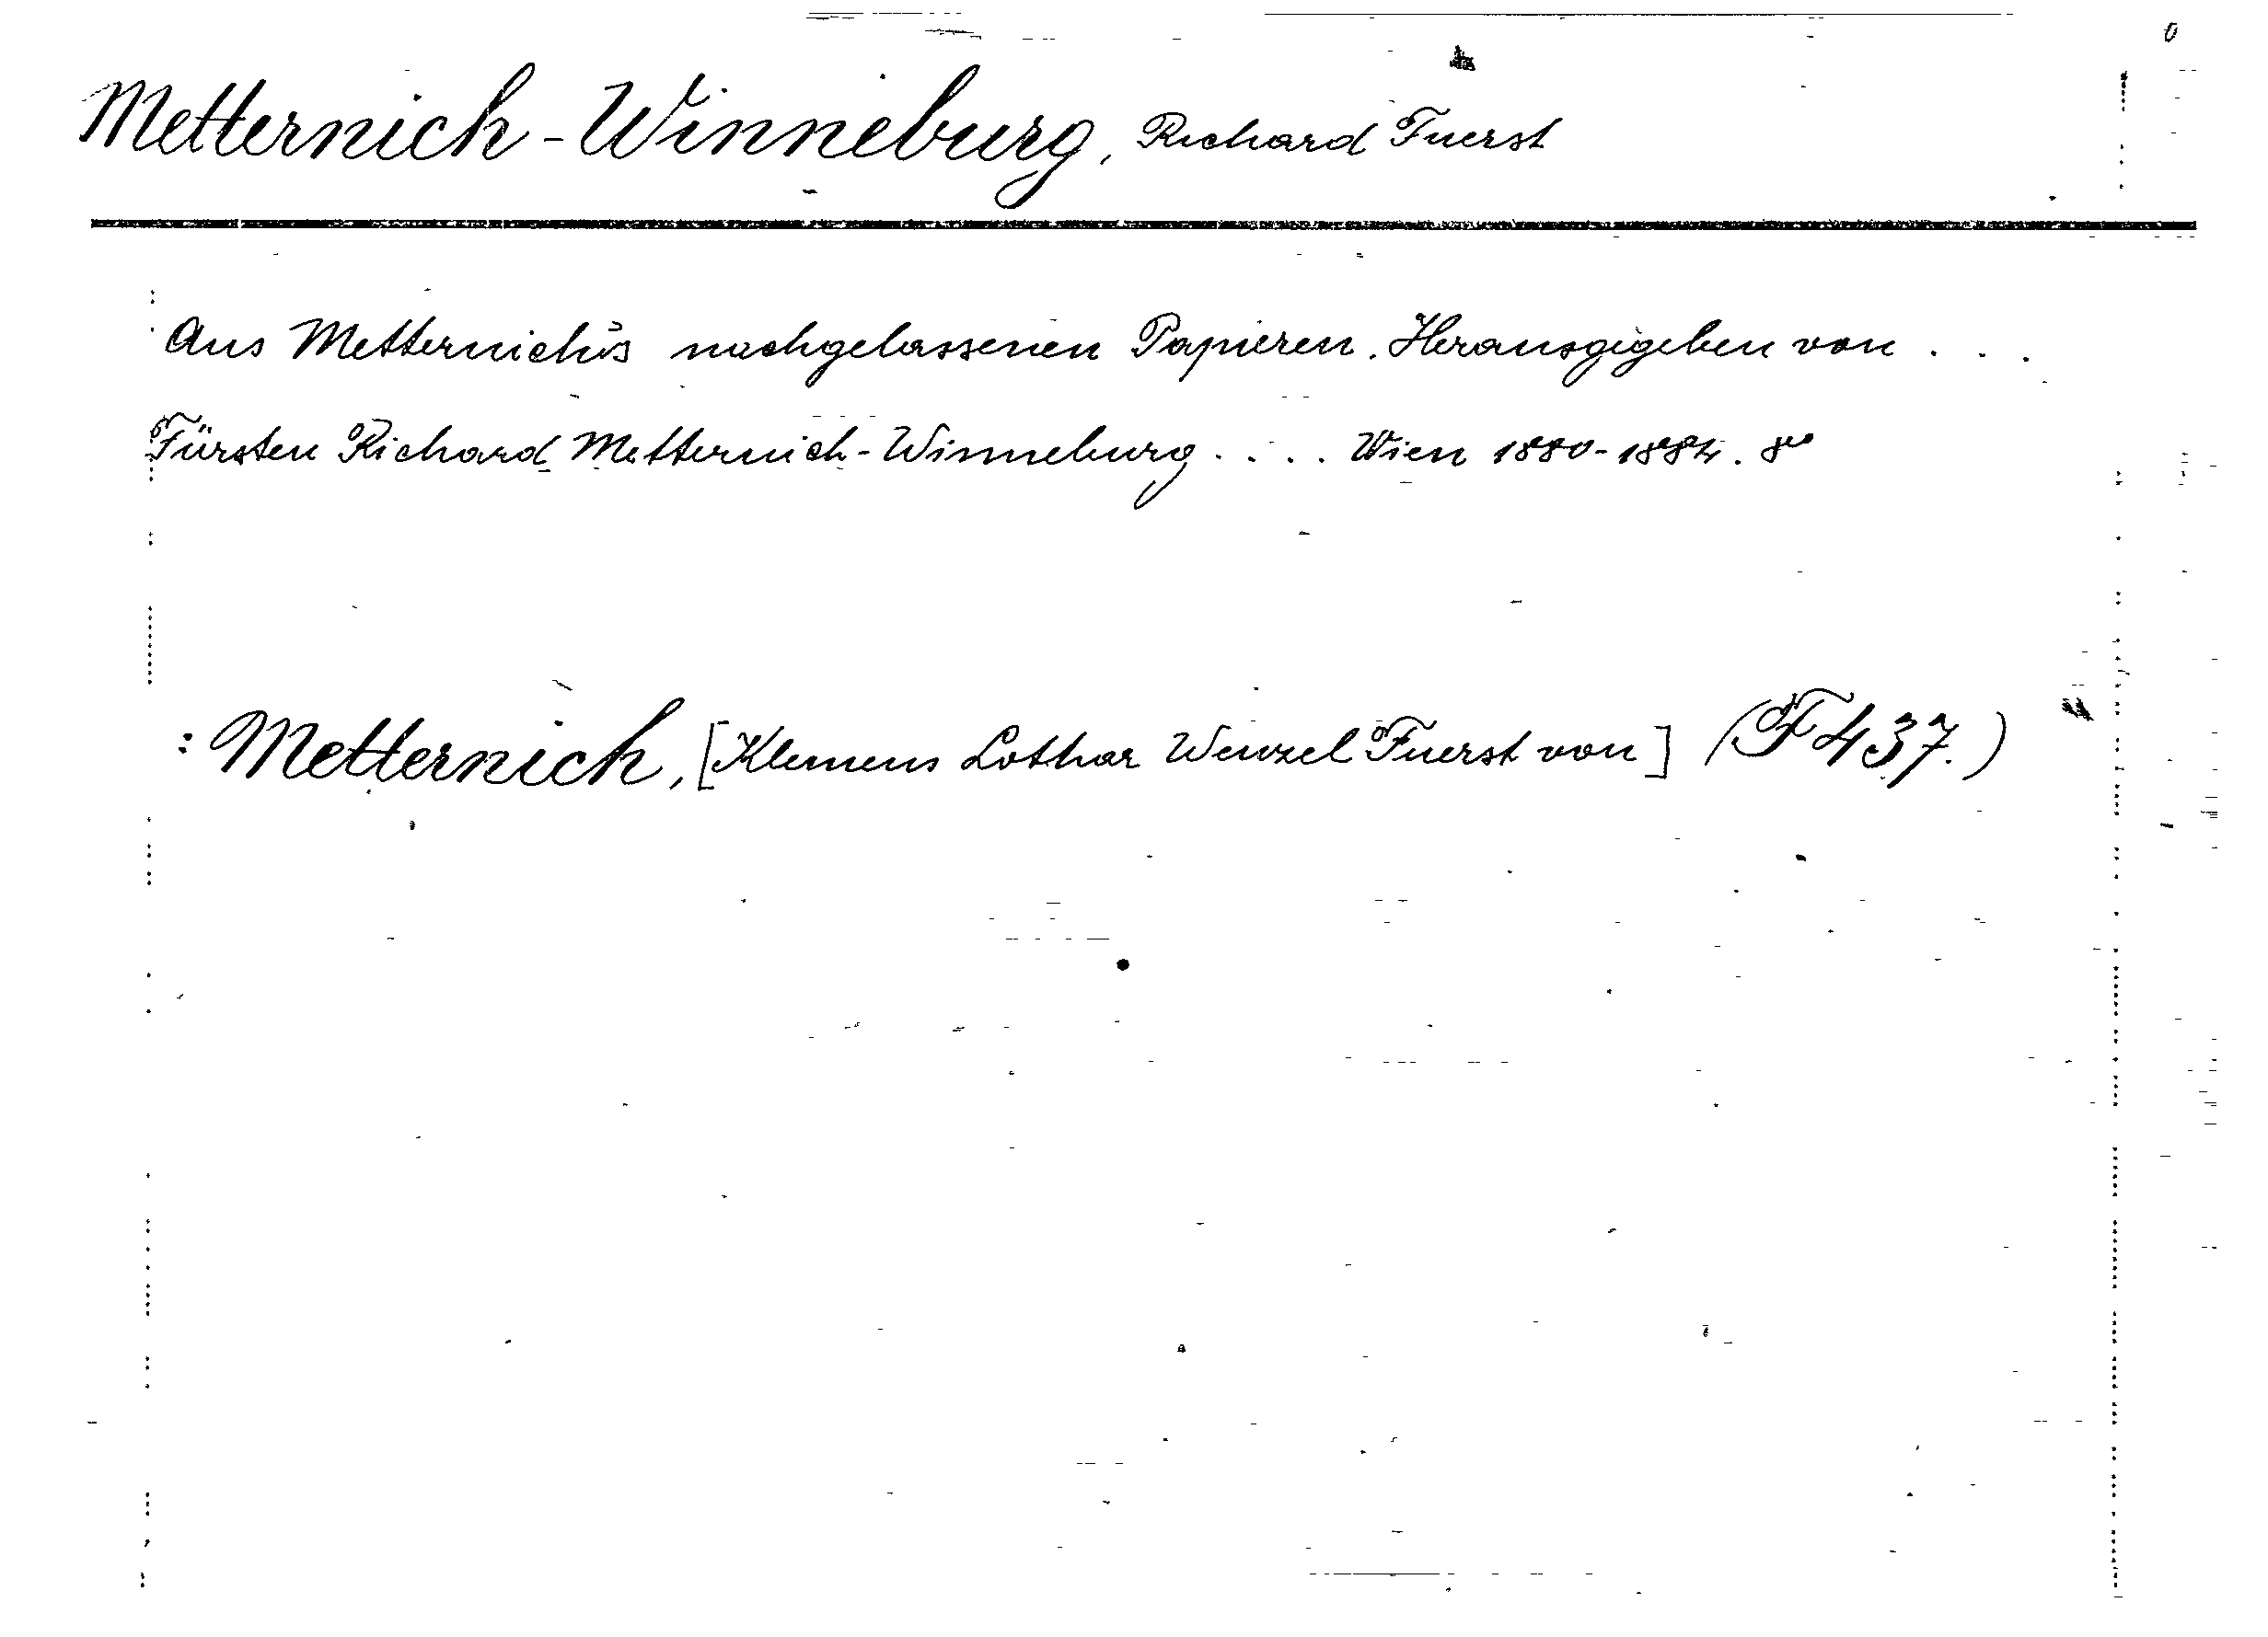 Metternich-Winneburg, Richard Fuerst
Aus Metternich's nachgelassenen Papieren. Herausgegeben von . . .
Fürsten Richard Metternich-Winneburg . . . . Wien 1880-1884. 8°
: Metternich, [Klemens Lothar Wenzel Fuerst von] (F 437.)